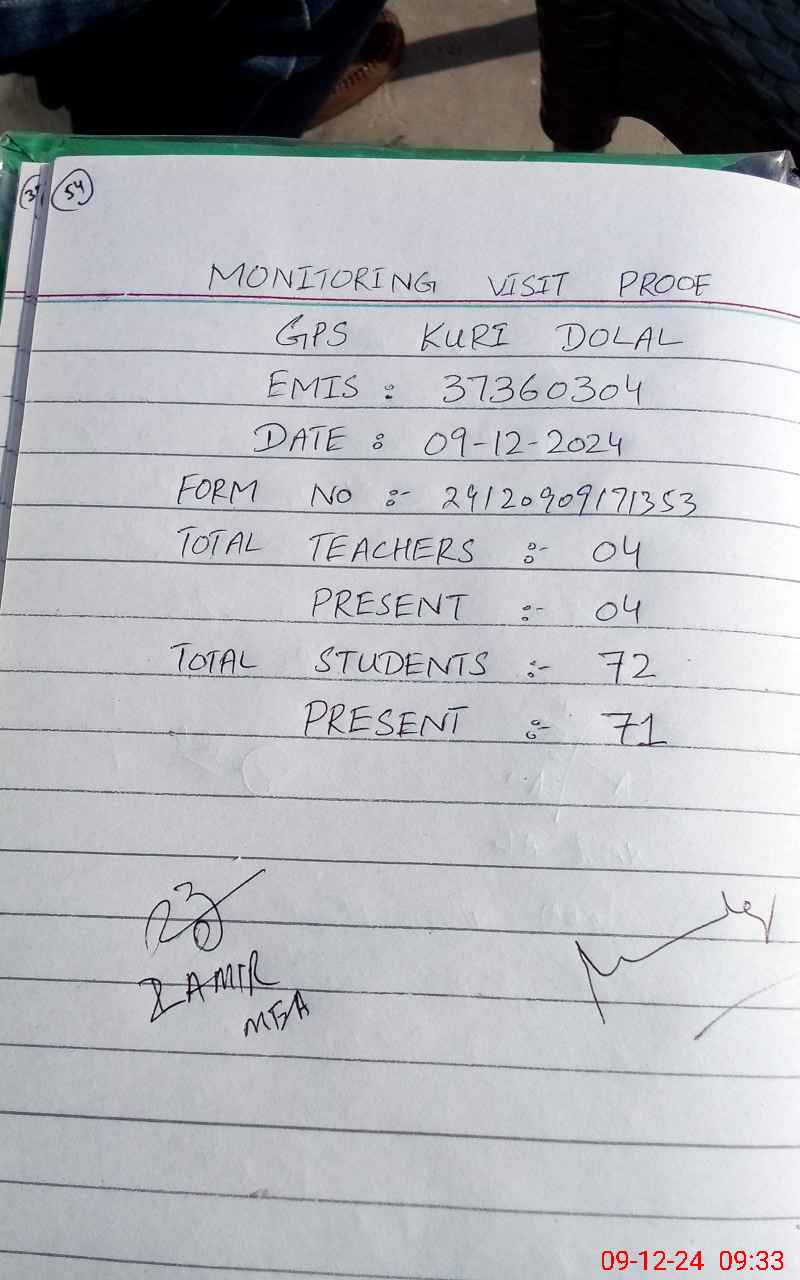 54
MONITORING VISIT PROOF
GPS KURI DOLAL
EMIS : 37360304
DATE : 09-12-2024
FORM NO :- 24120909171353
TOTAL TEACHERS :- 04
PRESENT :- 04
TOTAL STUDENTS :- 72
PRESENT :- 71
ZAMIR
MEA
09-12-24 09:33